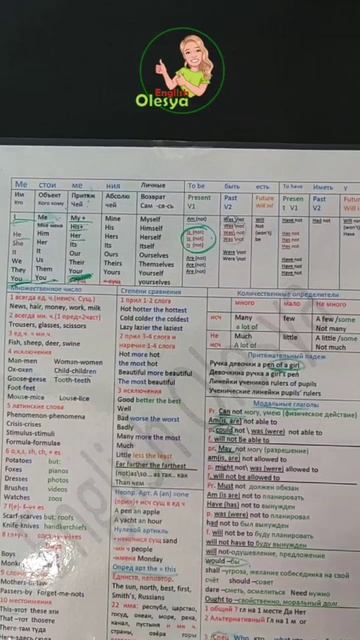 English
Olesya
Ме стои ме ния Личные To be быть есть To have Иметь у
Им Объект Притяж Абсолю Возврат Present Past Future Presen Past Future
Кто Кого кому Чей чей Сам -ся-сь V1 V2 t V1 V2
I Me My + Mine Myself Am (not) Was\not Will Have not Had not Will
He Him His+ His Himself Is (not) Was\not Not
She Her Her Hers Herself Is (not) Was\not (won't) Has not
It It Its Its Itself Is (not) Was\not be Has not
We Us Our Ours Ourselves Are (not) Were\not Have not
They Them Their Theirs Themselves Are (not) Were\not Have not
You You Your Yours Yourself Are (not) Have not
yourselves
Множественное число
1 всегда ед.ч.(неисч. Сущ.)
News, hair, money, work, milk
2 всегда мн. ч.(2 предм+2част)
Trousers, glasses, scissors
3 ед.ч. = мн.ч.
Fish, sheep, deer, swine
4 исключения
Man-men Woman-women
Ox-oxen Child-children
Goose-geese Tooth-teeth
Foot-feet
Mouse-mice Louse-lice
5 латинские слова
Phenomenon-phenomena
Crisis-crises
Stimulus-stimuli
Formula-formulae
Potatoes but:
Foxes pianos
Dresses photos
Brushes videos
Watches zoos
Scarf-scarves but: roofs
Knife-knives handkerchiefs
Boys
Mothers-in-law
Passers-by Forget-me-nots
10 местоимения
This-these эти
That-those те
There-там туда
Степени сравнения
1 прил 1-2 слога
Hot hotter the hottest
Cold colder the coldest
Lazy lazier the laziest
2 прил 3-4 слога и
наречие 1-4 слога
Hot more hot
the most hot
Beautiful more beautiful
The most beautiful
3 исключения
Good better the best
Well
Bad worse the worst
Badly
Many more the most
Much
Little less the least
Far farther the farthest
(not)as\so...as так.. как
Than чем
Неопр. Арт. A (an) some
A pen an apple
A yacht an hour
Нулевой артикль
+неисчисл сущ sand
+мн ч people
+имена Monday
Опред арт the = this
Единств, неповтор,
The sun, north, best, first,
Smith's, Russians
22 има: республ, царство,
госуд, океан, море, река,
канал, пустыня и мн. ч.
страны, озёра горы
Количественные определители
много мало Не много
исч Many few A few /some
a lot of Not many
Не Much little A little /some
исч A lot of Not much
Притяжательный падеж
Ручка девочки a pen of a girl
Девочкина ручка a girl's pen
Линейки учеников rulers of pupils
Ученические линейки pupils' rulers
Модальные глаголы
Pr Can not могу, умею (физическое действие)
Am(is, are) not able to
p.could not\ was (were) not able to
f. will not be able to
pr. May not могу (разрешение)
am(is, are) not allowed to
p. might not\ was (were) not allowed to
f. will not be allowed to
Pr. Must not должен обязан
Am (is are) not to планировать
Have (has) not to вынужден
p. was (were) not to планировал
had not to был вынужден
f. will not be to буду планировать
will not have to буду вынужден
will not-одушевление, предложение
would –бы
shall –угроза, желание собеседника на свой
счёт should –совет
dare –сметь, осмелиться Need нужно
Ought to –собственно, моральный долг
1 общий ? гл на 1 месте Да Нет
2 Альтернативный Гл на 1 м or